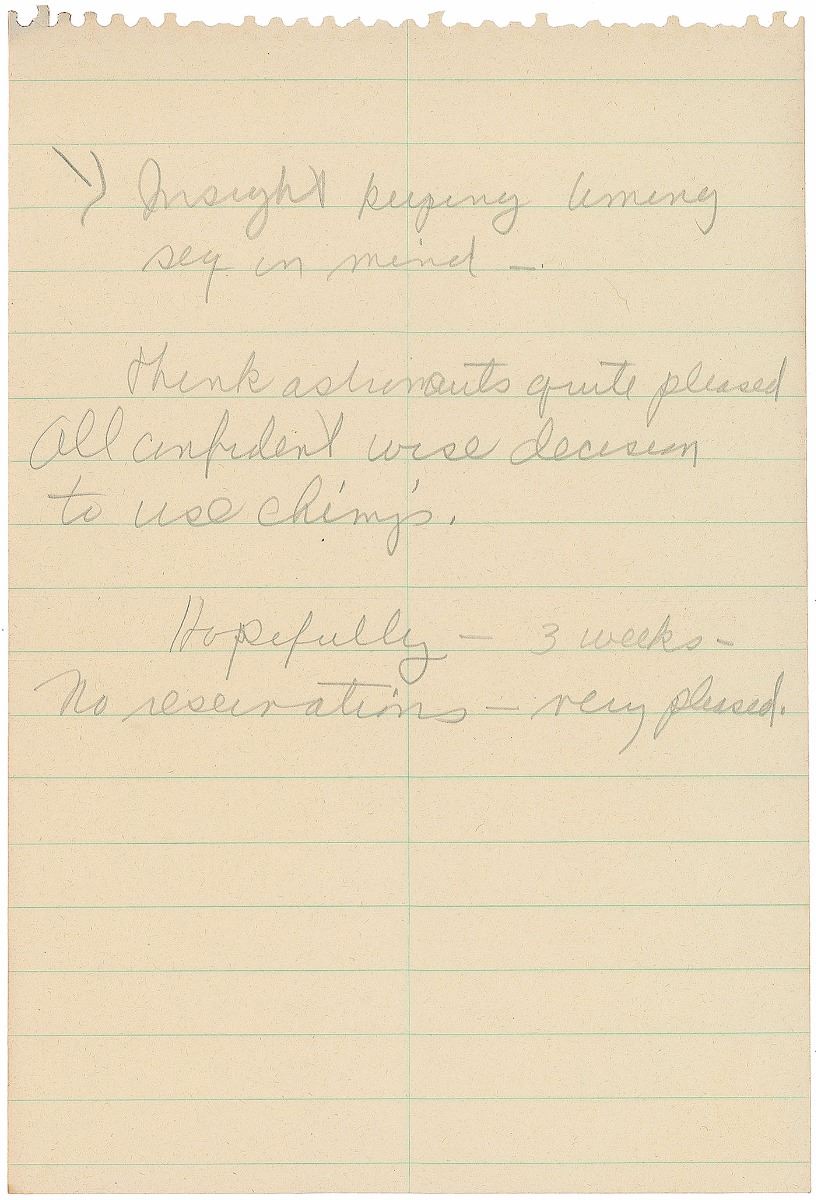 1) Insight keeping timing
seq. in mind —
Think astronauts quite pleased
All confident wise decision
to use chimps.
Hopefully — 3 weeks —
No reservations — very pleased.